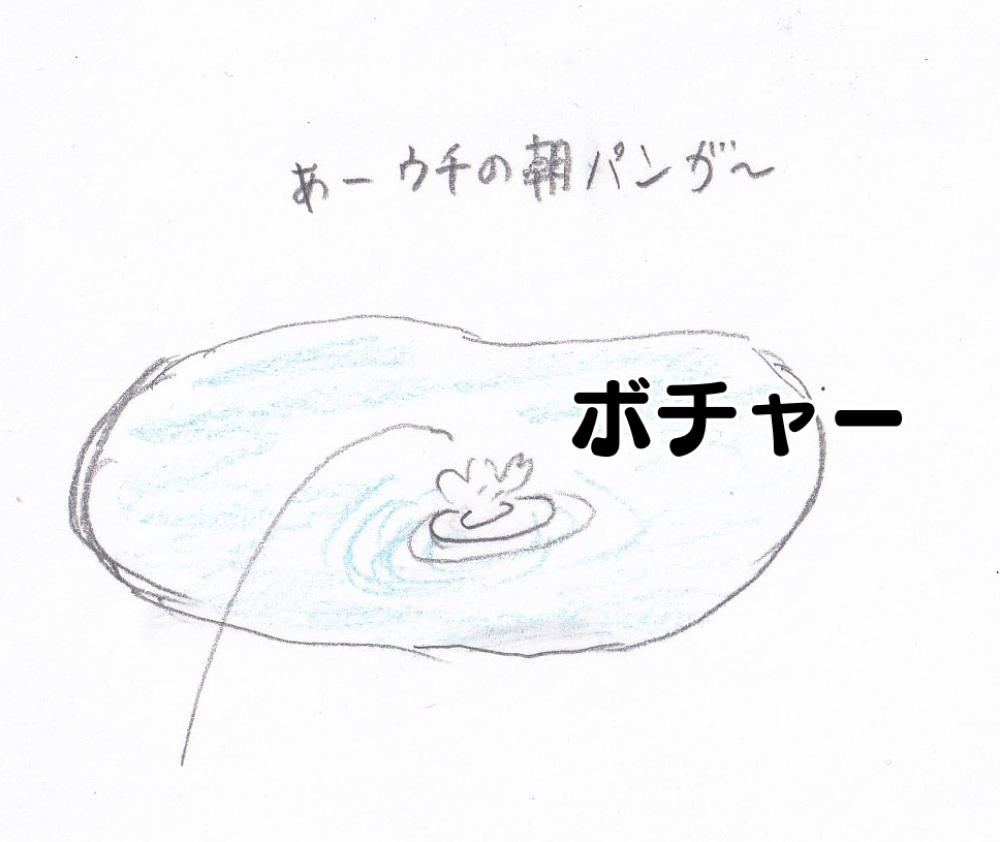 あーウチの朝パンが〜
ボチャー